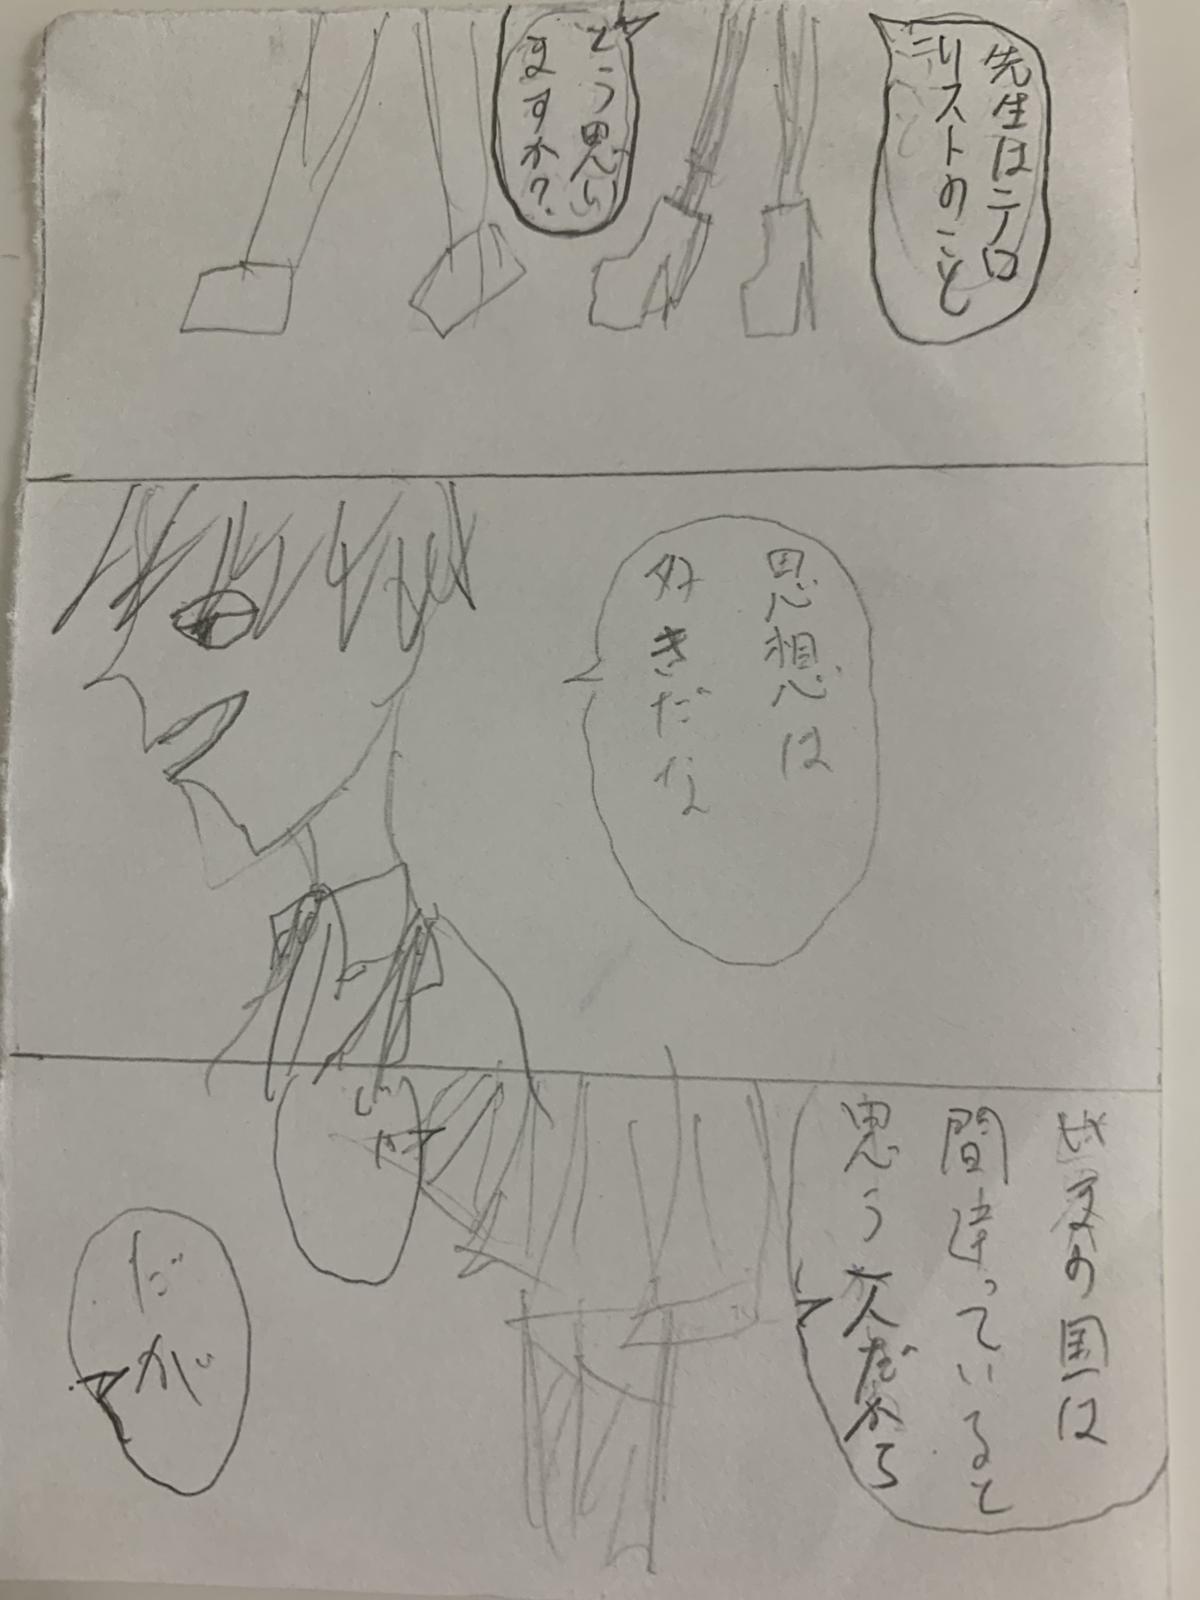 先生はテロ
リストのこと
どう思い
ますか?
思想は
好きだな
の国は
間違っていると
思う
だから
だが